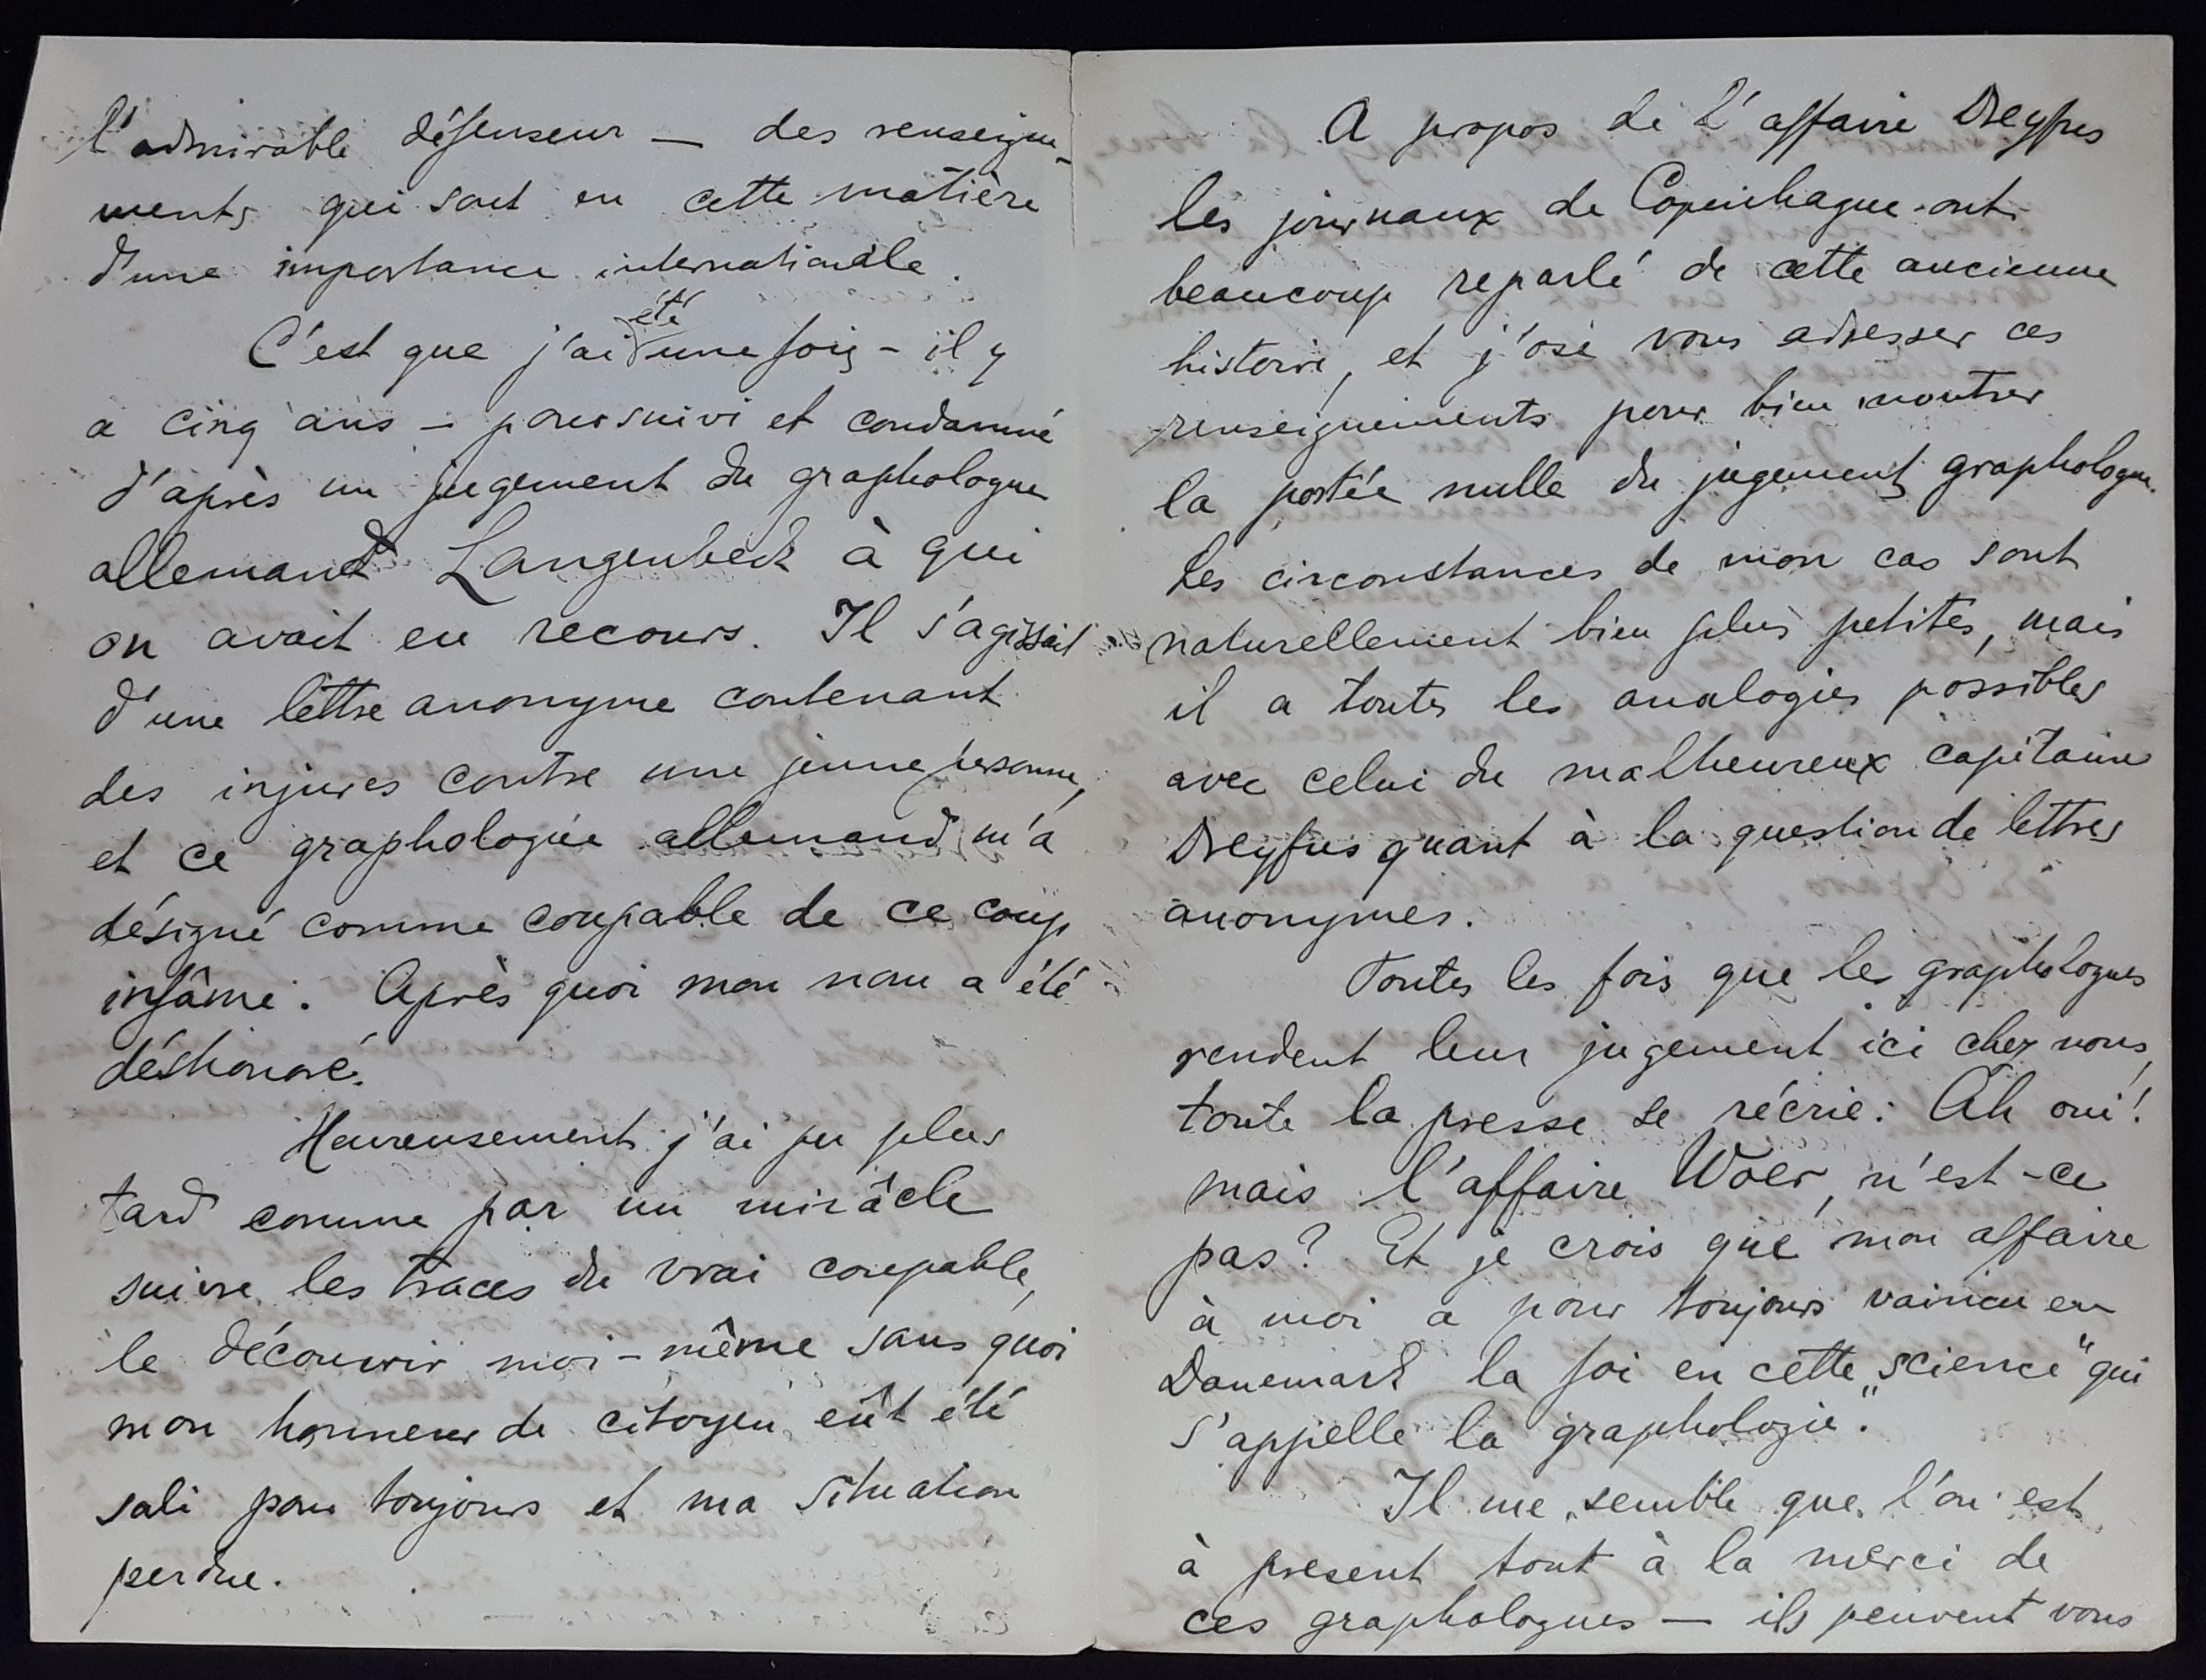 l'admirable défenseur — des renseigne-
ments qui sont en cette matière
d'une importance internationale.
C'est que j'ai été une fois – il y
a cinq ans – poursuivi et condamné
d'après un jugement du graphologue
allemand Langenbeck à qui
on avait eu recours. Il s'agissait
d'une lettre anonyme contenant
des injures contre une jeune personne,
et ce graphologue allemand m'a
désigné comme coupable de ce coup
infâme. Après quoi mon nom a été
déshonoré.
Heureusement j'ai pu plus
tard comme par un mirâcle
suivre les traces du vrai coupable,
le découvrir moi-même sans quoi
mon honneur de citoyen eût été
sali pour toujours et ma situation
perdue.
A propos de L'affaire Dreyfus
les journaux de Copenhague ont
beaucoup reparlé de cette ancienne
histoire, et j'ose vous adresser ces
renseignements pour bien montrer
la portée nulle du jugement graphologue.
Les circonstances de mon cas sont
naturellement bien plus petites, mais
il a toutes les analogies possibles
avec celui du malheureux capitaine
Dreyfus quant à la question de lettres
anonymes.
Toutes les fois que les graphologues
rendent leur jugement ici chez nous,
toute la presse se récrie: Ah oui!
mais l'affaire Woer, n'est-ce
pas? Et je crois que mon affaire
à moi a pour toujours vaincu en
Danemark la foi en cette „science" qui
s'appelle la graphologie.
Il me semble que l'on est
à present tout à la merci de
ces graphologues — ils peuvent vous